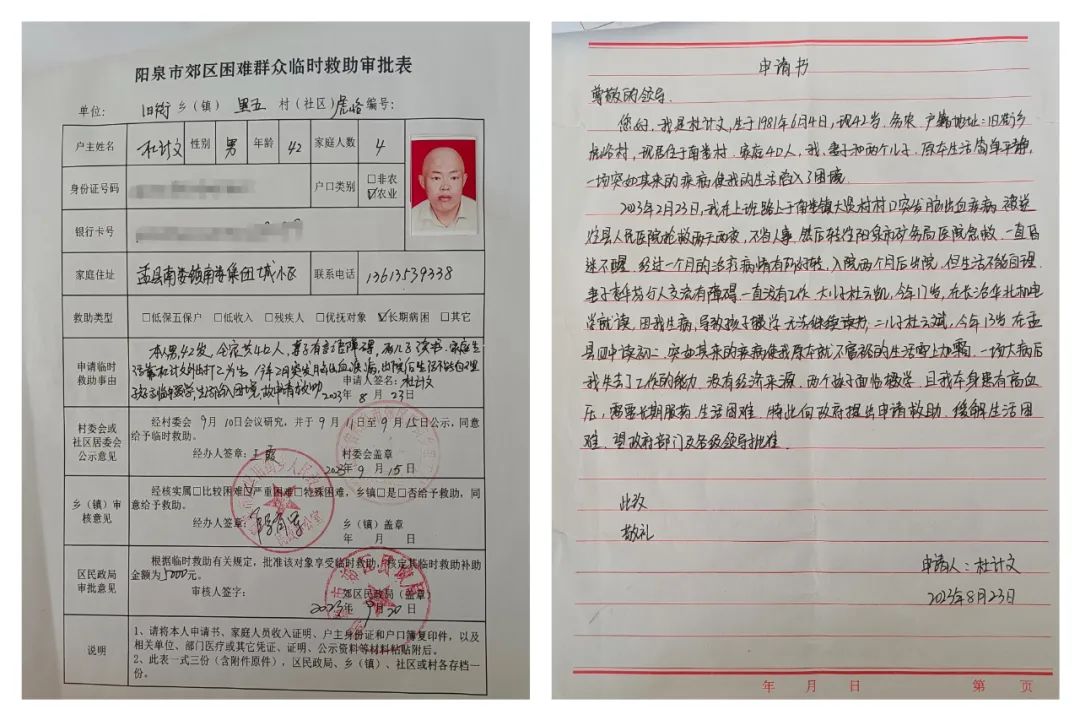 阳泉市郊区困难群众临时救助审批表
单位: 旧街 乡(镇) 黑五 村(社区) 虎峪 编号:
户主姓名 杜计文 性别 男 年龄 42 家庭人数 4
身份证号码 户口类别 □非农 ☑农业
银行卡号
家庭住址 盂县南娄镇南娄集团城小区 联系电话 13613539338
救助类型 □低保五保户 □低收入 □残疾人 □优抚对象 ☑长期病困 □其它
申请临时救助事由
本人男,42岁,全家共4口人,妻子有言语障碍,两儿子读书,家庭生
活靠杜计文外出打工为生,今年2月突发脑出血疾病,出院后生活不能自理
孩子面临辍学,生活陷入困境,故申请救助
申请人签名: 杜计文
2023年 8月 23日
村委会或社区居委会公示意见
经村委会 9月10日会议研究,并于 9月11日至 9月15日公示,同意给予临时救助。
经办人签章: 王霞 村委会盖章
2023年 9月 15日
乡(镇)审核意见
经核实属□比较困难☑严重困难□特殊困难,乡镇□是□否给予救助,同意给予救助。
经办人签章: 乡(镇)盖章
年 月 日
区民政局审批意见
根据临时救助有关规定,批准该对象享受临时救助,核定其临时救助补助金额为5000元。
审核人签字: 郊区民政局(盖章)
2023年 9月20日
说明
1、请将本人申请书、家庭人员收入证明、户主身份证和户口簿复印件,以及
相关单位、部门医疗或其它凭证、证明、公示资料等材料粘贴附后。
2、此表一式三份(含附件原件),区民政局、乡(镇)、社区或村各存档一
份。
申请书
尊敬的领导:
您好,我是杜计文,生于1981年6月4日,现42岁,务农,户籍地址:旧街乡
虎峪村,现居住于南娄村,家庭4口人,我、妻子和两个儿子,原本生活简单平静,
一场突如其来的疾病使我的生活陷入了困境。
2023年2月23日,我在上班路上于南娄镇大贤村村口突发脑出血疾病,被送
盂县人民医院抢救两天两夜,不省人事,然后转往阳泉市矿务局医院急救,一直昏
迷不醒,经过一个月的治疗病情有所好转,入院两个月后出院,但生活不能自理,
妻子李华芳与人交流有障碍,一直没有工作,大儿子杜云凯,今年17岁,在长治华北机电
学就读,因我生病,导致孩子辍学,无法继续读书,二儿子杜云斌,今年13岁,在盂
县四中读初二,突如其来的疾病使我原本就不富裕的生活雪上加霜,一场大病后
我失去了工作的能力,没有经济来源,两个孩子面临辍学,且我本身患有高血
压,需要长期服药,生活困难,特此向政府提出申请救助,缓解生活困
难,望政府部门及各级领导批准。
此致
敬礼
申请人:杜计文
2023年8月23日
年 月 日 第 页